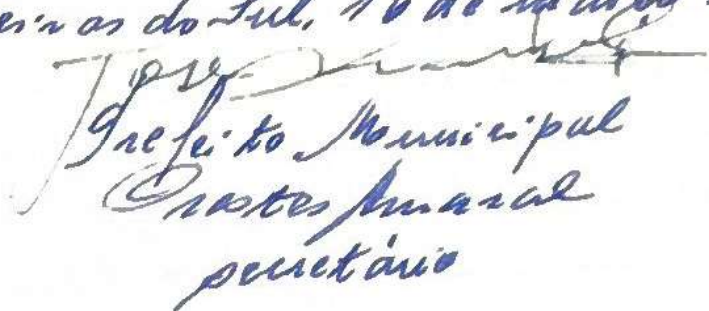 do Sul, 10 de
José
Prefeito Municipal
Orostes Amaral
secretário